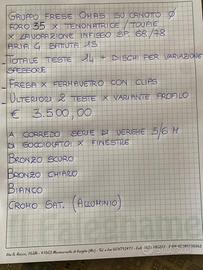 GRUPPO FRESE OMAS SU CANOTTO Ø
FORO 35 X TENONATRICE / TOUPIE
X LAVORAZIONE INFISSO SP. 68/78
ARIA 4 BATTUTA 15
- TOTALE TESTE 14 + DISCHI PER VARIAZIONE
SPESSORE
- FRESA X FERMAVETRO CON CLIPS
- ULTERIORI 2 TESTE X VARIANTE PROFILO
€ 3.500,00
A CORREDO SERIE DI VERGHE 5/6 M
DI GOCCIOLATOI X FINESTRE
BRONZO SCURO
BRONZO CHIARO
BIANCO
CROMO SAT. (ALLUMINIO)